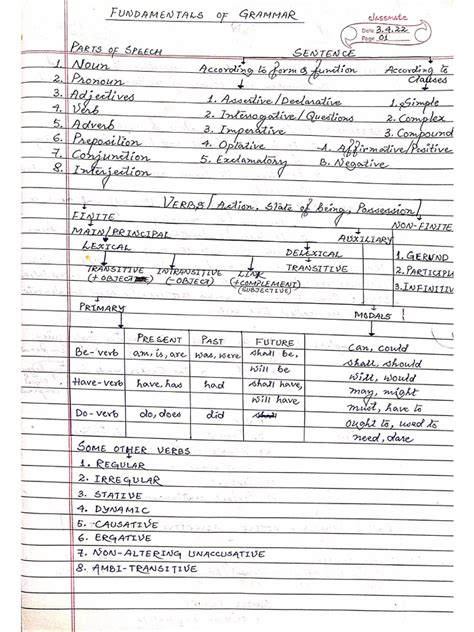 FUNDAMENTALS OF GRAMMAR
classmate
Date 3.4.22
Page 01
PARTS OF SPEECH
SENTENCE
1. Noun
2. Pronoun
3. Adjectives
4. Verb
5. Adverb
6. Preposition
7. Conjunction
8. Interjection
According to form & function
1. Assertive/Declarative
2. Interrogative/Questions
3. Imperative
4. Optative
5. Exclamatory
According to
Clauses
1. Simple
2. Complex
3. Compound
A. Affirmative/Positive
B. Negative
VERBS [Action, State of being, Possession]
FINITE
NON-FINITE
MAIN/PRINCIPAL
AUXILIARY
LEXICAL
DELEXICAL
1. GERUND
2. PARTICIPL
3. INFINITIV
TRANSITIVE
(+ OBJECT)
INTRANSITIVE
(-OBJECT)
LINK
(+COMPLEMENT)
(SUBJECTIVE)
TRANSITIVE
PRIMARY
MODALS
PRESENT PAST FUTURE
Be-verb am, is, are was, were shall be,
will be
Have-verb have, has had shall have,
will have
Do-verb do, does did
Can, could
shall, should
will, would
may, might
must, have to
ought to, used to
need, dare
SOME OTHER VERBS
1. REGULAR
2. IRREGULAR
3. STATIVE
4. DYNAMIC
5. CAUSATIVE
6. ERGATIVE
7. NON-ALTERING UNACCUSATIVE
8. AMBI-TRANSITIVE